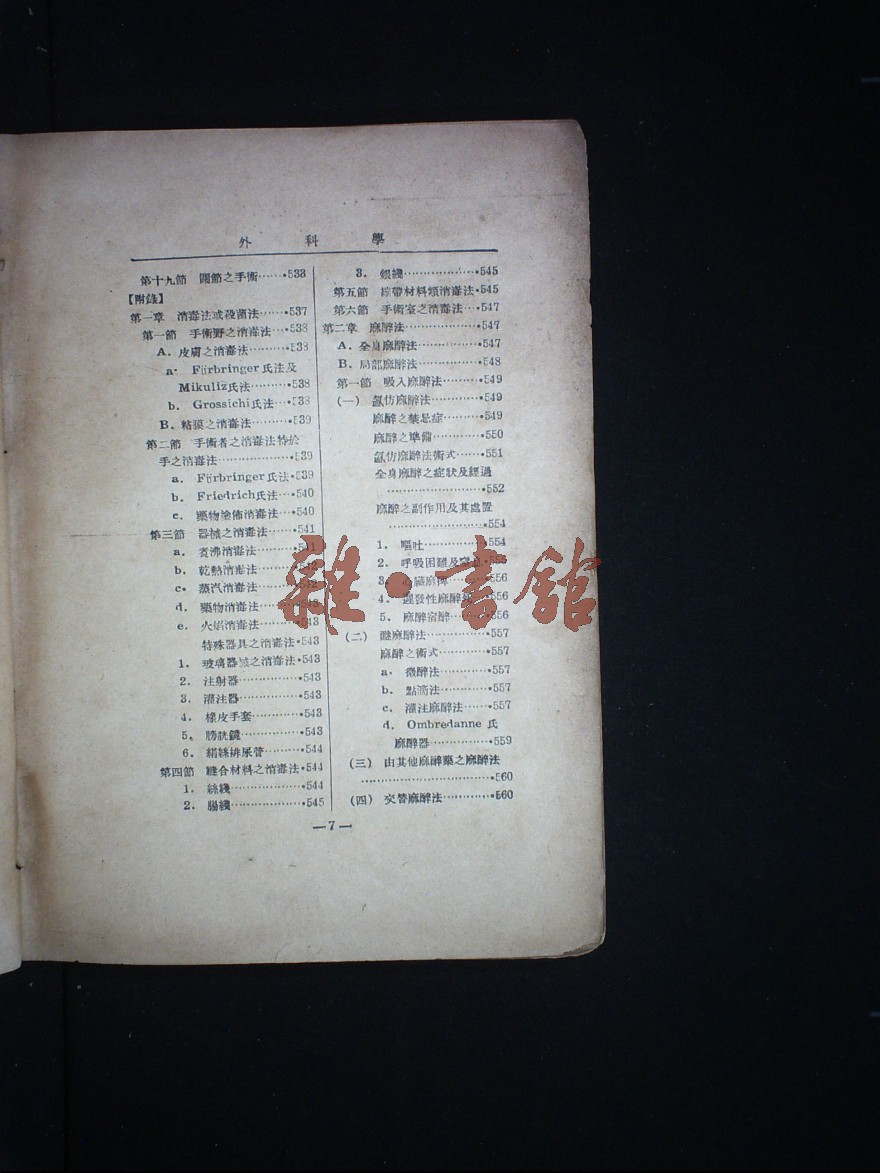 外科學
第十九節 關節之手術……533
【附錄】
第一章 消毒法或殺菌法……537
第一節 手術野之消毒法…538
A. 皮膚之消毒法………538
a. Fürbringer氏法及
Mikuliz氏法………538
b. Grossichi氏法…538
B. 粘膜之消毒法………539
第二節 手術者之消毒法特於
手之消毒法……………539
a. Fürbringer氏法·539
b. Friedrich氏法…540
c. 藥物塗佈消毒法…540
第三節 器械之消毒法……541
a. 煑沸消毒法………541
b. 乾熱消毒法………542
c. 蒸汽消毒法………542
d. 藥物消毒法………543
e. 火焰消毒法………543
特殊器具之消毒法·543
1. 玻璃器械之消毒法·543
2. 注射器……………543
3. 灌注器……………543
4. 橡皮手套…………543
5. 膀胱鏡……………543
6. 絹絲排尿管………544
第四節 縫合材料之消毒法·544
1. 絲綫………………544
2. 腸綫………………545
3. 銀綫………………545
第五節 繃帶材料類消毒法·545
第六節 手術室之消毒法…547
第二章 麻醉法……………547
A. 全身麻醉法…………547
B. 局部麻醉法…………548
第一節 吸入麻醉法………549
(一) 氯仿麻醉法………549
麻醉之禁忌症………549
麻醉之準備…………550
氯仿麻醉法術式……551
全身麻醉之症狀及經過
……………………552
麻醉之副作用及其處置
……………………554
1. 嘔吐………………554
2. 呼吸困難及窒息…555
3. 心臟麻痺…………556
4. 遲發性麻醉…556
5. 麻醉宿醉…………556
(二) 醚麻醉法…………557
麻醉之術式…………557
a. 微醉法……………557
b. 點滴法……………557
c. 灌注麻醉法………557
d. Ombredanne 氏
麻醉器……………559
(三) 由其他麻醉藥之麻醉法
……………………560
(四) 交替麻醉法………560
—7—
雜·書館